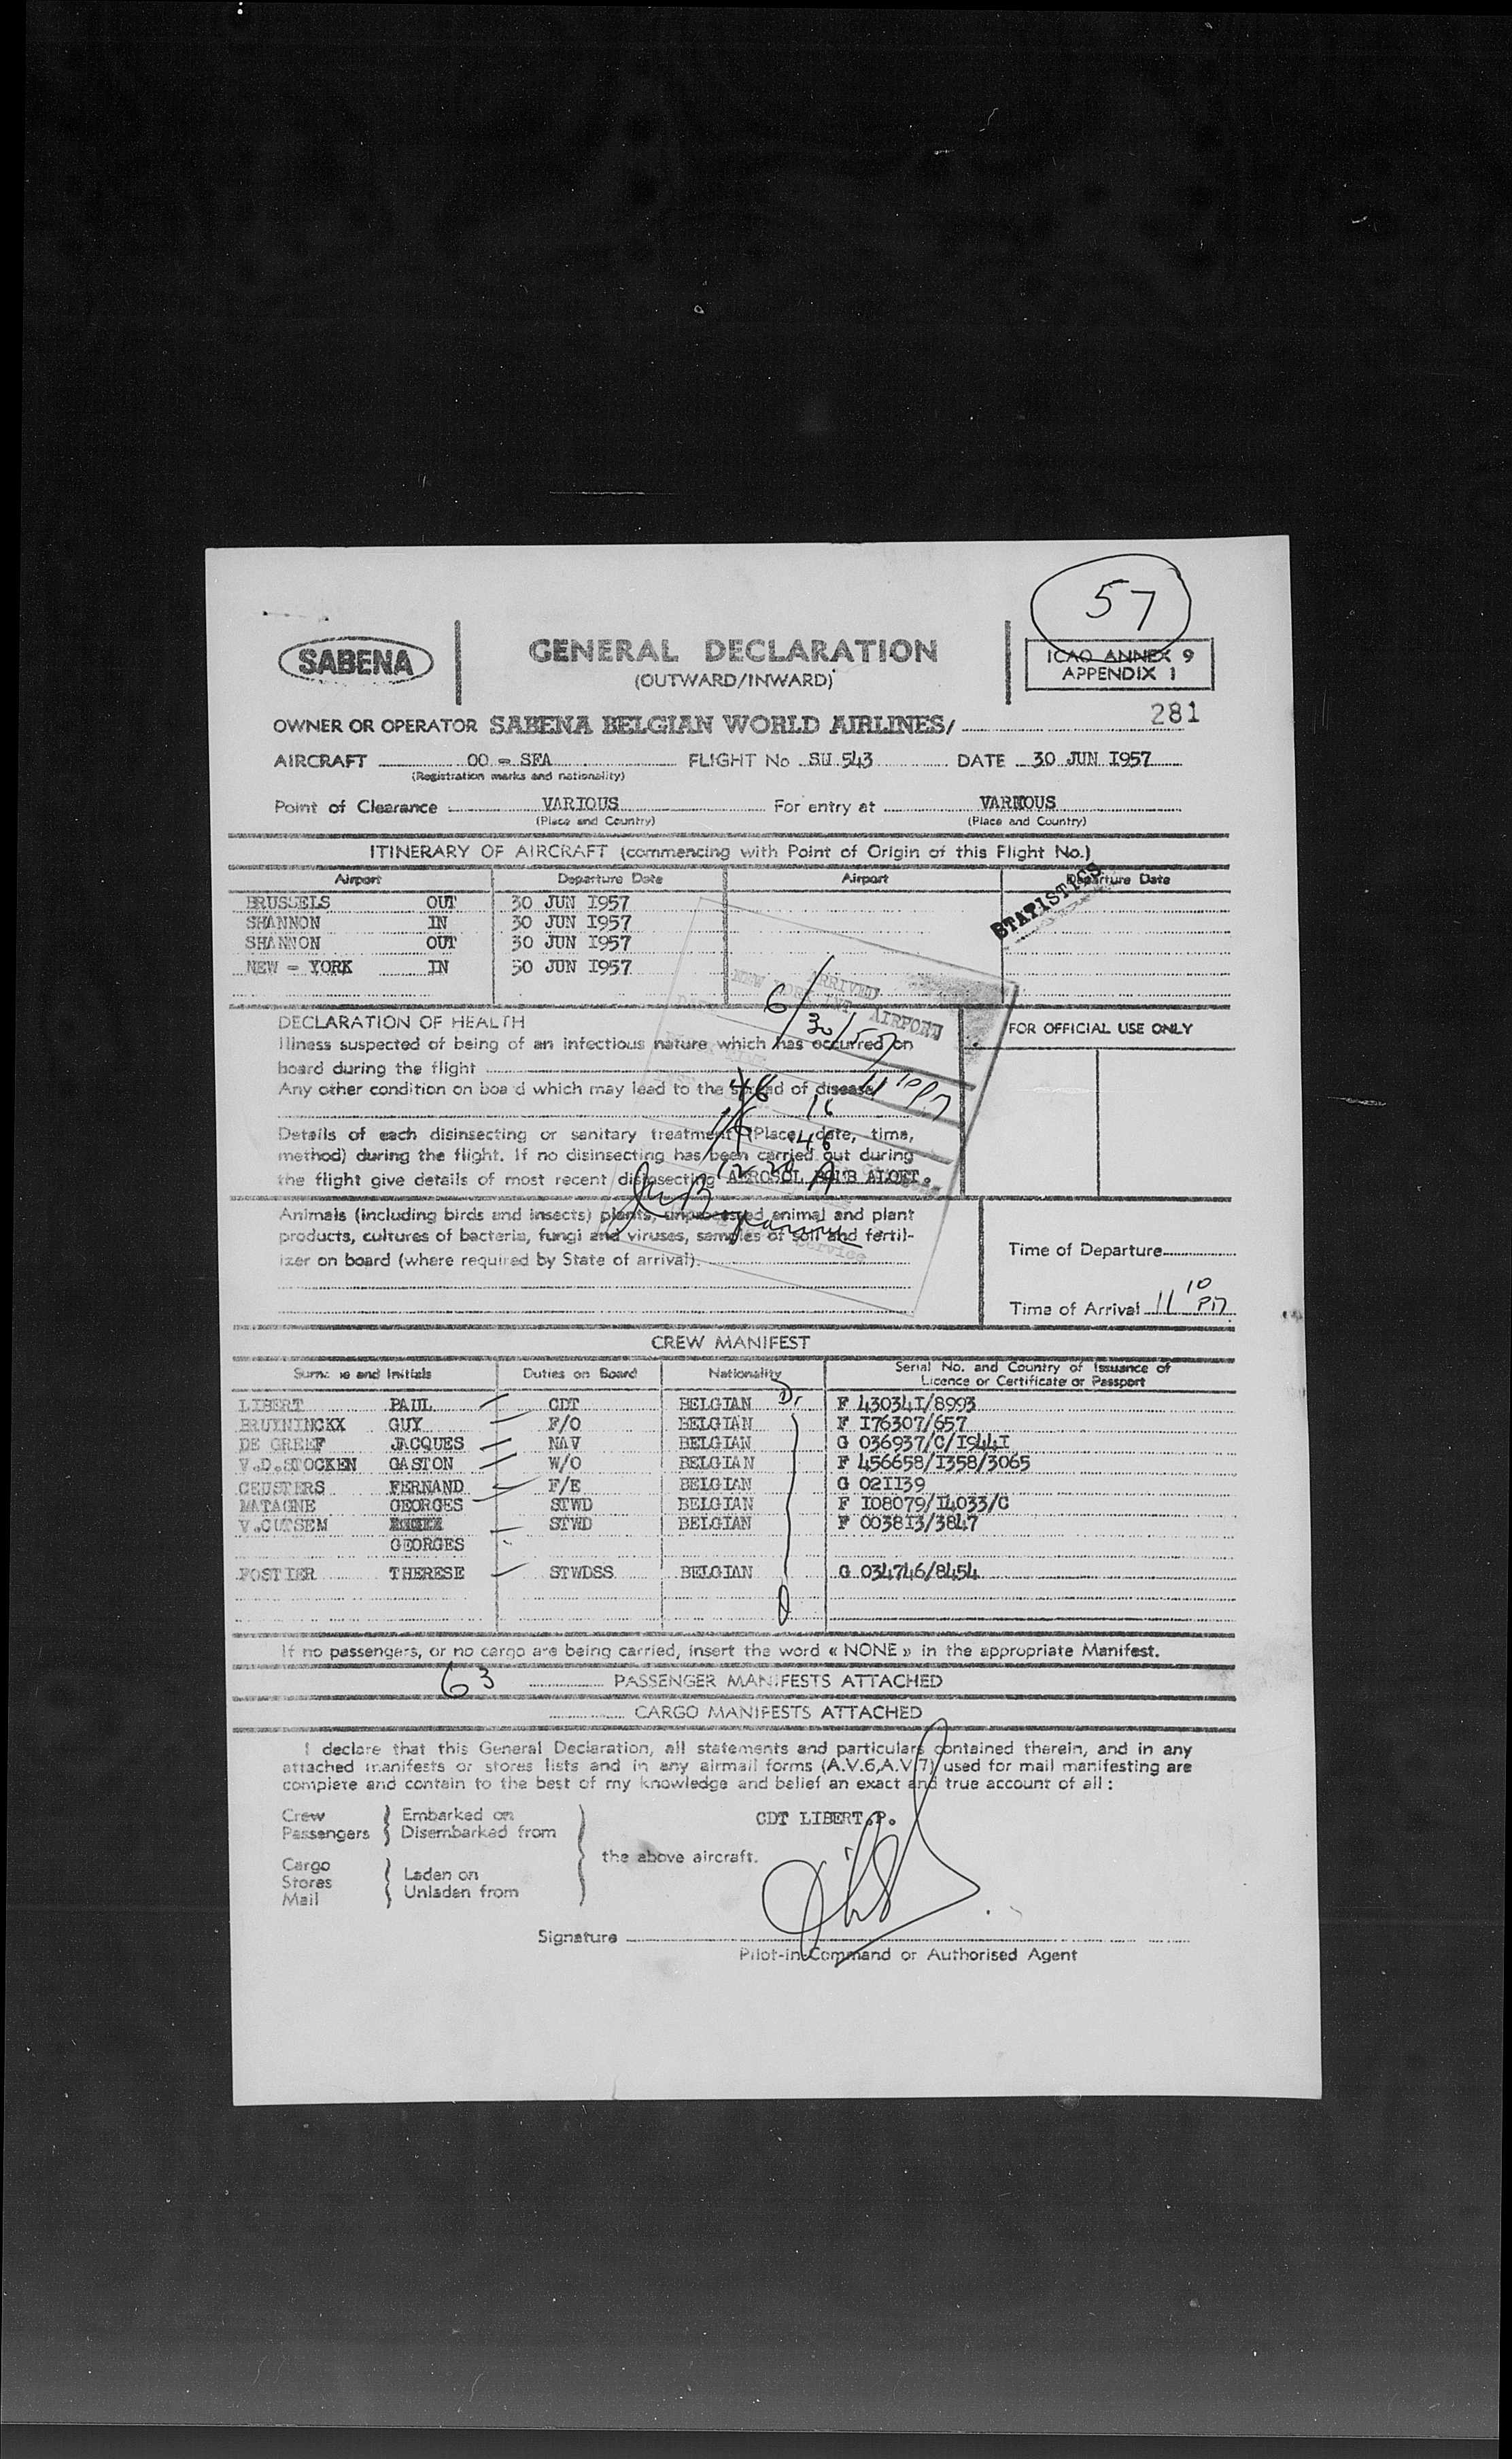 57
SABENA
GENERAL DECLARATION
(OUTWARD/INWARD)
ICAO ANNEX 9
APPENDIX 1
281
OWNER OR OPERATOR SABENA BELGIAN WORLD AIRLINES/
AIRCRAFT OO - SFA FLIGHT No SU 543 DATE 30 JUN I957
(Registration marks and nationality)
Point of Clearance VARIOUS For entry at VARIOUS
(Place and Country) (Place and Country)
ITINERARY OF AIRCRAFT (commencing with Point of Origin of this Flight No.)
Airport Departure Date Airport Departure Date
STATISTICS
BRUSSELS OUT 30 JUN I957
SHANNON IN 30 JUN I957
SHANNON OUT 30 JUN I957
NEW - YORK IN 30 JUN I957
ARRIVED
NEW YORK INT. AIRPORT
6/30/57
DECLARATION OF HEALTH
FOR OFFICIAL USE ONLY
Illness suspected of being of an infectious nature which has occurred on
board during the flight
Any other condition on board which may lead to the spread of disease
11 10 PM
46
16
Details of each disinsecting or sanitary treatment (Place, date, time,
method) during the flight. If no disinsecting has been carried out during
the flight give details of most recent disinsecting AEROSOL BOMB ALOFT.
Animals (including birds and insects) plants, unprocessed animal and plant
products, cultures of bacteria, fungi and viruses, samples of soil and fertil-
izer on board (where required by State of arrival).
Service
Time of Departure
Time of Arrival 11 10 PM
CREW MANIFEST
Surname and Initials Duties on Board Nationality Serial No. and Country of Issuance of
Licence or Certificate or Passport
LIBERT PAUL CDT BELGIAN F 43034I/8993
BRUININCKX GUY F/O BELGIAN F I76307/657
DE GREEF JACQUES NAV BELGIAN G 036937/C/I944I
V.D.STOCKEN GASTON W/O BELGIAN F 456658/I358/3065
CEUSTERS FERNAND F/E BELGIAN G 02II39
MATAGNE GEORGES STWD BELGIAN F I08079/I4033/C
V.CUTSEM STWD BELGIAN F 0038I3/3847
GEORGES
FOSTIER THERESE STWDSS BELGIAN G 034746/8454
If no passengers, or no cargo are being carried, insert the word « NONE » in the appropriate Manifest.
63 PASSENGER MANIFESTS ATTACHED
CARGO MANIFESTS ATTACHED
I declare that this General Declaration, all statements and particulars contained therein, and in any
attached manifests or stores lists and in any airmail forms (A.V.6,A.V.7) used for mail manifesting are
complete and contain to the best of my knowledge and belief an exact and true account of all :
Crew Embarked on
Passengers Disembarked from
CDT LIBERT.P.
the above aircraft.
Cargo
Stores Laden on
Mail Unladen from
Signature
Pilot-in-Command or Authorised Agent